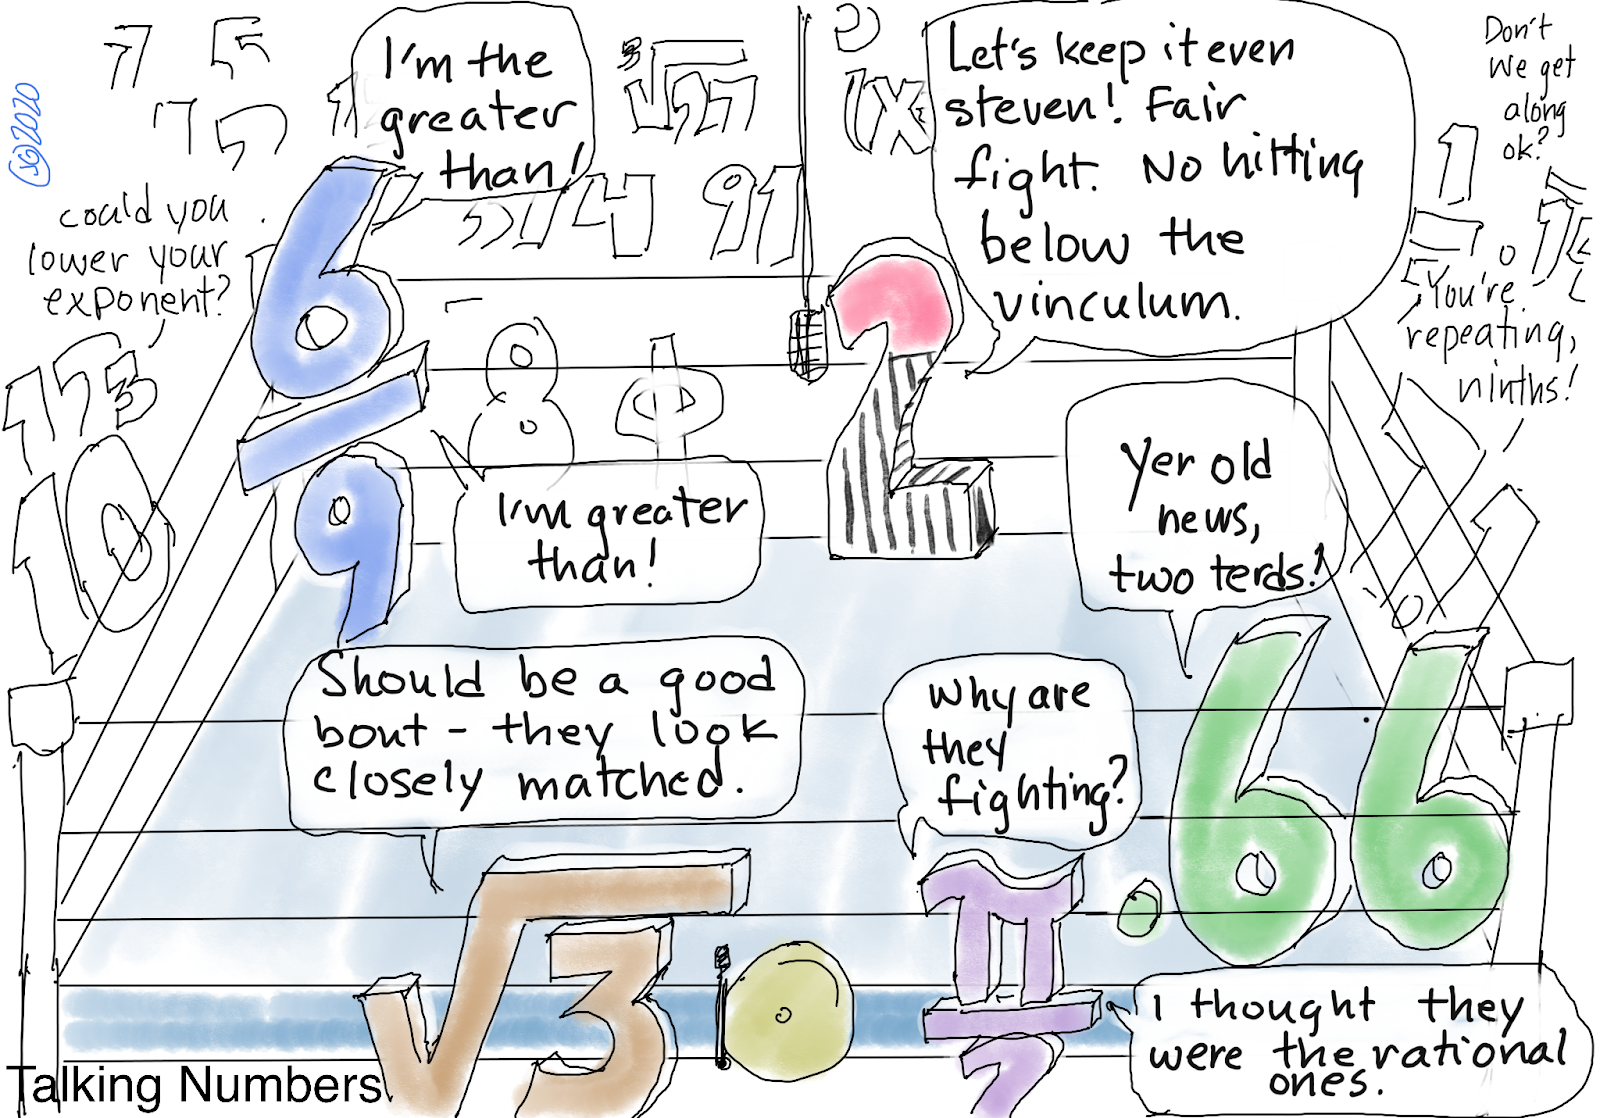 ©2020
I'm the
greater
than!
Let's keep it even
steven! Fair
fight. No hitting
below the
vinculum.
Don't
we get
along
ok?
could you
lower your
exponent?
7
5
7
5
3√27
91
1
17 3
10
6
9
8
2
You're
repeating,
ninths!
I'm greater
than!
Yer old
news,
two terds!
Should be a good
bout - they look
closely matched.
Why are
they
fighting?
.66
√3
π
2
I thought they
were the rational
ones.
Talking Numbers